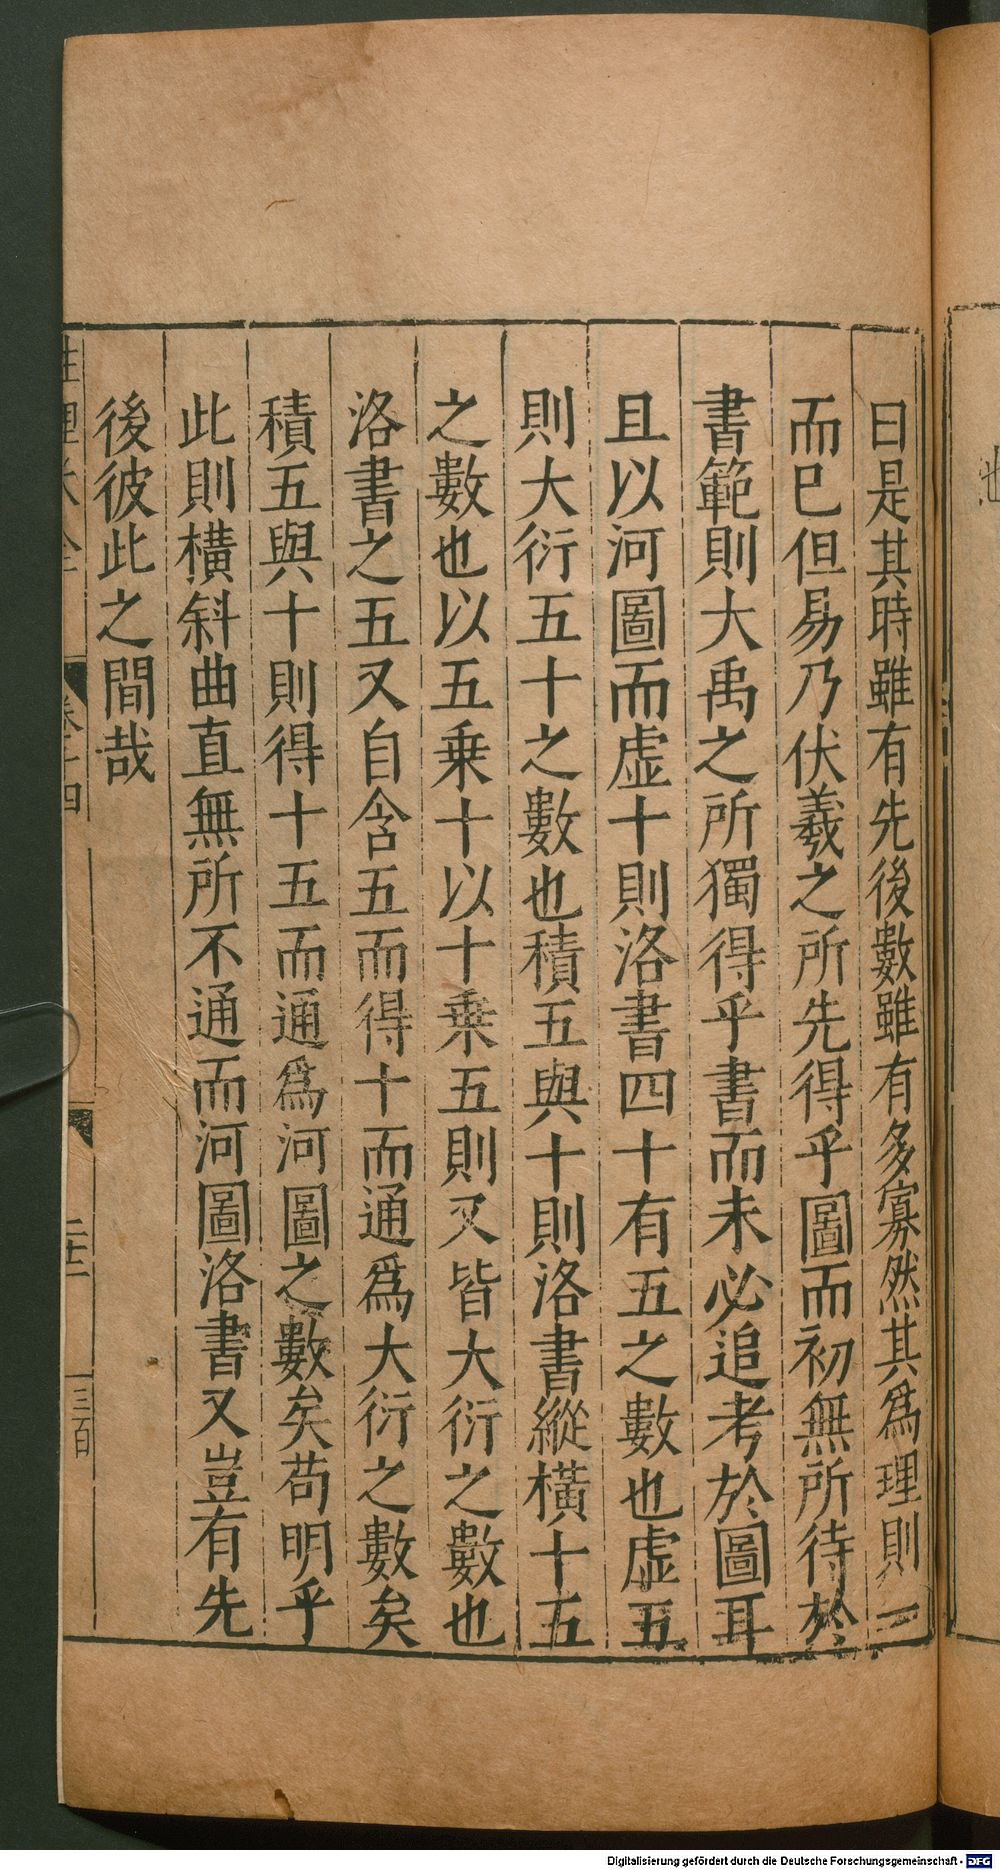 曰是其時雖有先後數雖有多寡然其爲理則一
而已但易乃伏羲之所先得乎圖而初無所待於
書範則大禹之所獨得乎書而未必追考於圖耳
且以河圖而虚十則洛書四十有五之數也虚五
則大衍五十之數也積五與十則洛書縱橫十五
之數也以五乗十以十乗五則又皆大衍之數也
洛書之五又自含五而得十而通爲大衍之數矣
積五與十則得十五而通爲河圖之數矣苟明乎
此則橫斜曲直無所不通而河圖洛書又豈有先
後彼此之間哉
三百
Digitalisierung gefördert durch die Deutsche Forschungsgemeinschaft - DFG